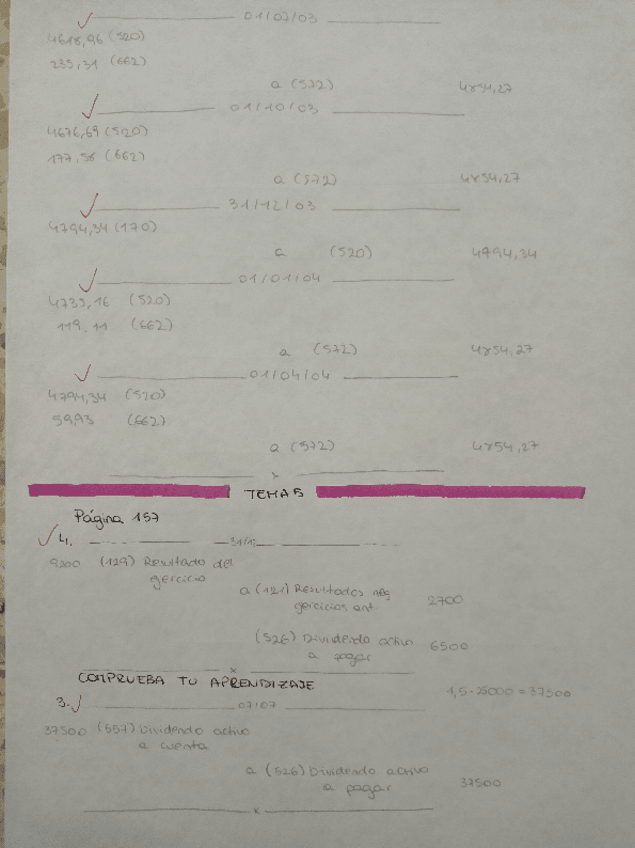 01/07/03
4618,96 (520)
235,31 (662)
a (572) 4854,27
01/10/03
4676,69 (520)
177,58 (662)
a (572) 4854,27
31/12/03
4794,34 (170)
a (520) 4794,34
01/01/04
4735,16 (520)
119,11 (662)
a (572) 4854,27
01/04/04
4794,34 (520)
59,93 (662)
a (572) 4854,27
x
TEMA 5
Página 157
4. 31/12
9200 (129) Resultado del
ejercicio
a (121) Resultados neg
ejercicios ant. 2700
(526) Dividendo activo
a pagar 6500
x
COMPRUEBA TU APRENDIZAJE
1,5 · 25000 = 37500
3. 07/07
37500 (557) Dividendo activo
a cuenta
a (526) Dividendo activo
a pagar 37500
x